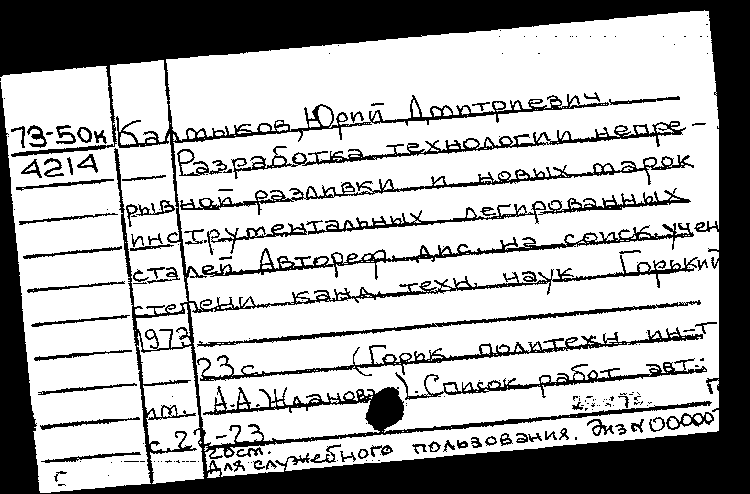 73-50к Калмыков, Юрий Дмитриевич.
4214 Разработка технологии непре-
рывной разливки и новых марок
инструментальных легированных
сталей. Автореф. дис. на соиск. учен
степени канд. техн. наук. Горький
1973.
23 с. (Горьк. политехн. ин-т
им. А.А. Жданова). Список работ авт.:
с. 22-23.
20см.
Для служебного пользования. Экз N 00000